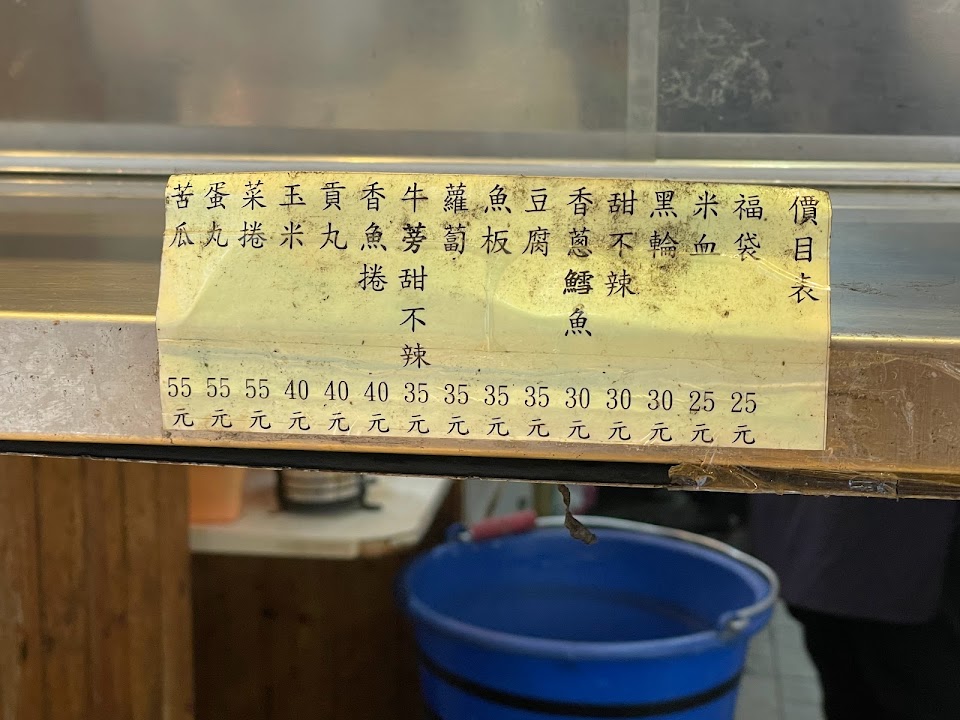 價目表
福袋 25元
米血 25元
黑輪 30元
甜不辣 30元
香蔥鱈魚 30元
豆腐 35元
魚板 35元
蘿蔔 35元
牛蒡甜不辣 35元
香魚捲 40元
貢丸 40元
玉米 40元
菜捲 55元
蛋丸 55元
苦瓜 55元